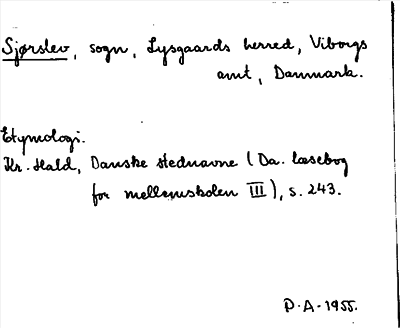 Sjørslev, sogn, Lysgaards herred, Viborgs
amt, Danmark.
Etymologi.
Kr. Hald, Danske stednavne (Da. læsebog
for mellemskolen III), s. 243.
P.A. 1955.